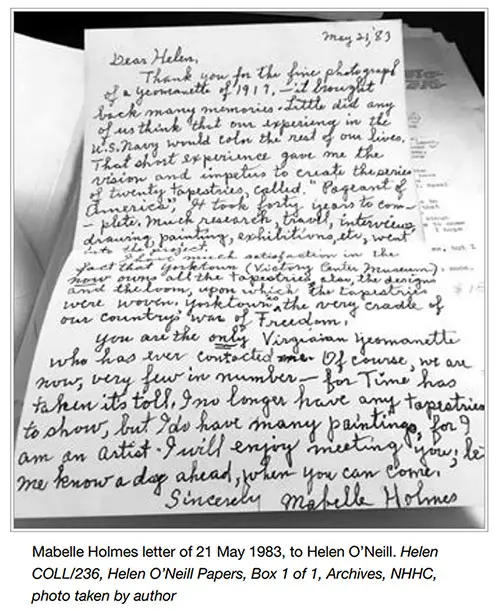 May 21,'83
Dear Helen,
Thank you for the fine photograph
of a Yeomanette of 1917, — it brought
back many memories. Little did any
of us think that our experience in the
U.S. Navy would color the rest of our lives.
That short experience gave me the
vision and impetus to create the series
of twenty tapestries, called, "Pageant of
America", It took forty years to com-
plete. Much research, travel, interviews,
drawing, painting, exhibitions, etc, went
into the project.
I have much satisfaction in the
fact that Yorktown (Victory Center Museum),
now owns all the tapestries also, the designs
and the loom, upon which the tapestries
were woven. Yorktown the very cradle of
our country's war of Freedom.
You are the only Virginian Yeomanette
who has ever contacted me. Of course, we are
now, very few in number — for Time has
taken its toll. I no longer have any tapestries
to show, but I do have many paintings, for I
am an artist. I will enjoy meeting you; let
me know a day ahead, when you can come.
Sincerely Mabelle Holmes
Mabelle Holmes letter of 21 May 1983, to Helen O'Neill. Helen
COLL/236, Helen O'Neill Papers, Box 1 of 1, Archives, NHHC,
photo taken by author